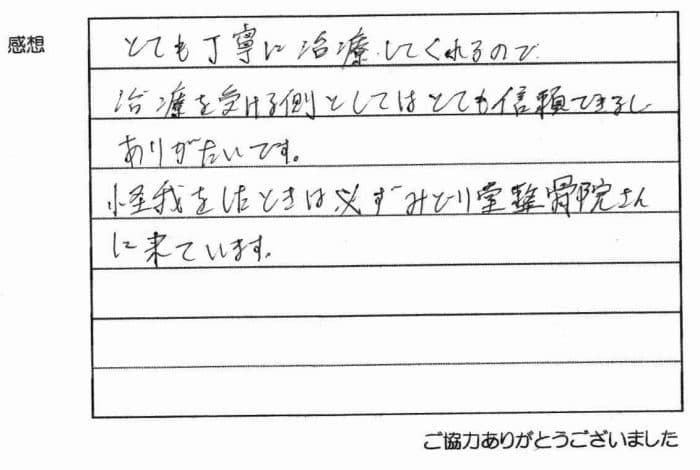 感想
とても丁寧に治療してくれるので
治療を受ける側としてはとても信頼できるし
ありがたいです。
怪我をしたときは必ずみどり堂整骨院さん
に来ています。
ご協力ありがとうございました